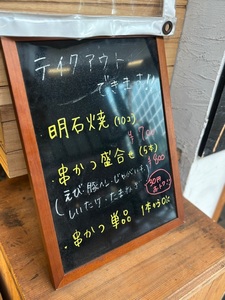 テイクアウト
できます!!
・明石焼(10コ)
¥700
・串かつ盛合せ(5本)
¥800
(えび・豚ヘレ・じゃがいも
しいたけ・たまねぎ
・串かつ 単品 1本¥130に